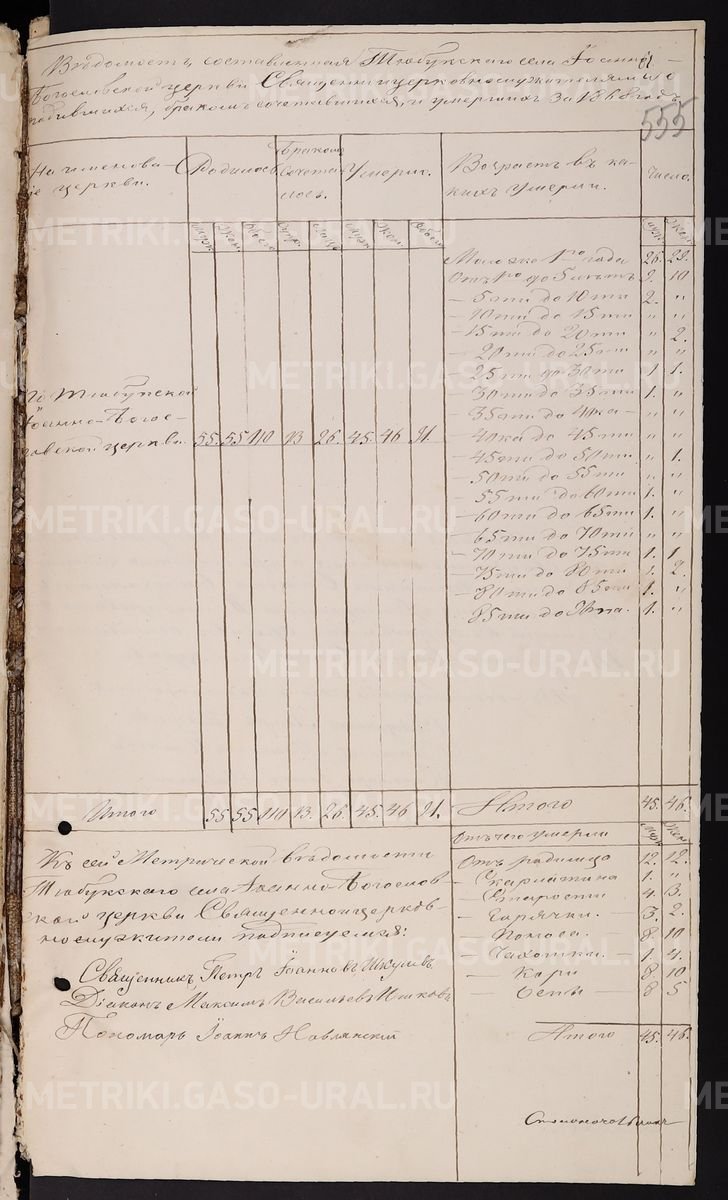 Вѣдомость, составленная Тюбукскаго села Іоанно-
Богословской церкви Священноцерковнослужителями о
родившихся, бракомъ сочетавшихся, и умершихъ за 1868 годъ.
555
Наименова-
іе церкви.
Родилось.
Бракомъ
сочета-
лось.
Умерли.
Возрастъ въ ка-
кихъ умерли.
Число.
Муж. Жен. Обоего Супр. лицъ Муж. Жен. Обоего
Муж. Жен.
Моложе 1го года 26. 29.
Отъ 1го до 5 лѣтъ 9. 10
— 5ти до 10ти 2. „
— 10ти до 15ти „ „
— 15ти до 20ти „ 2.
— 20ти до 25ти „ „
25ти до 30ти 1. 1.
— 30ти до 35ти 1. „
— 35ти до 40ка — „ „
— 40ка до 45ти „ „
— 45ти до 50ти „ 1.
— 50ти до 55ти „ „
— 55ти до 60ти 1. „
— 60ти до 65ти 1. „
— 65ти до 70ти „ „
— 70ти до 75ти 1. 1
— 75ти до 80ти 1. 2.
— 80ти до 85ти 1. „
— 85ти до 90та. 1. „
По Тюбукской
Іоанно-Богос-
ловской церкви. 55. 55 110 13 26. 45. 46 91.
Итого 55 55 110 13. 26. 45. 46 91.
Итого 45. 46.
Къ сей Метрической вѣдомости
Тюбукскаго села Іоанно-Богослов
ской церкви Священноцерков-
нослужители подписуемся:
Священникъ Петръ Іоанновъ
Діаконъ Максимъ Васильевъ
Пономарь Іоаннъ
Отъ чего умерли Муж. Жен.
Отъ родимца 12. 12.
— Скарлатина 1. „
— Старости 4. 3.
— Горячки. — 3. 2.
— Поноса. — 8 10
— Чахотки. — 1. 4.
— Кори 8 10
— Оспы — 8 5
Итого 45. 46.
METRIKI.GASO-URAL.RU